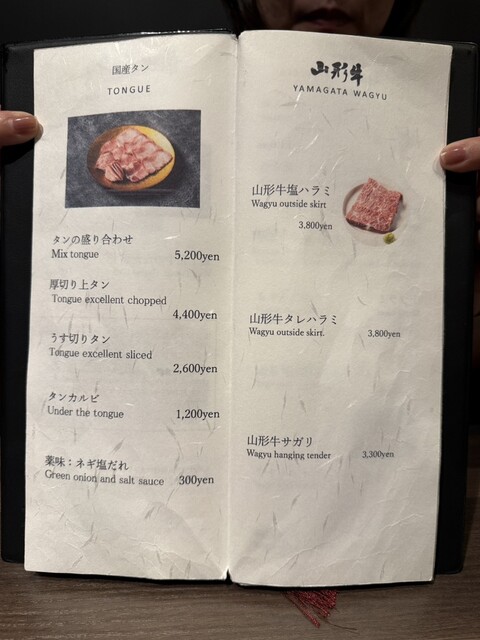 国産タン
TONGUE
タンの盛り合わせ
Mix tongue 5,200yen
厚切り上タン
Tongue excellent chopped
4,400yen
うす切りタン
Tongue excellent sliced
2,600yen
タンカルビ
Under the tongue 1,200yen
薬味：ネギ塩だれ
Green onion and salt sauce 300yen
山形牛
YAMAGATA WAGYU
山形牛塩ハラミ
Wagyu outside skirt
3,800yen
山形牛タレハラミ
Wagyu outside skirt. 3,800yen
山形牛サガリ
Wagyu hanging tender 3,300yen